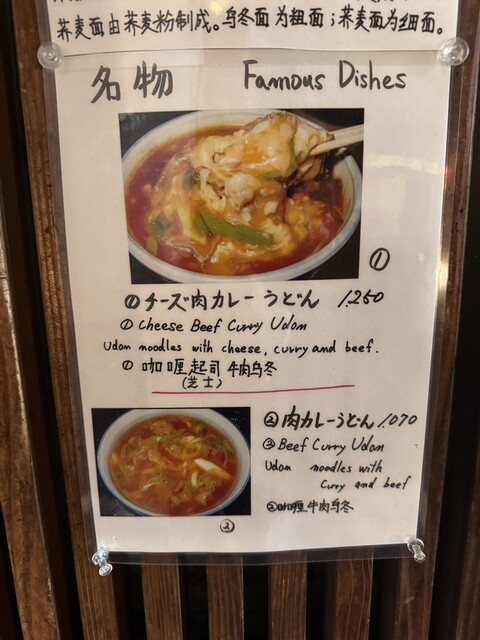 荞麦面由荞麦粉制成。乌冬面为粗面；荞麦面为细面。
名物 Famous Dishes
①
①チーズ肉カレーうどん 1.250
① Cheese Beef Curry Udon
Udon noodles with cheese, curry and beef.
① 咖喱起司牛肉乌冬
(芝士)
②肉カレーうどん 1.070
②Beef Curry Udon
Udon noodles with
Curry and beef
②咖喱牛肉乌冬
②